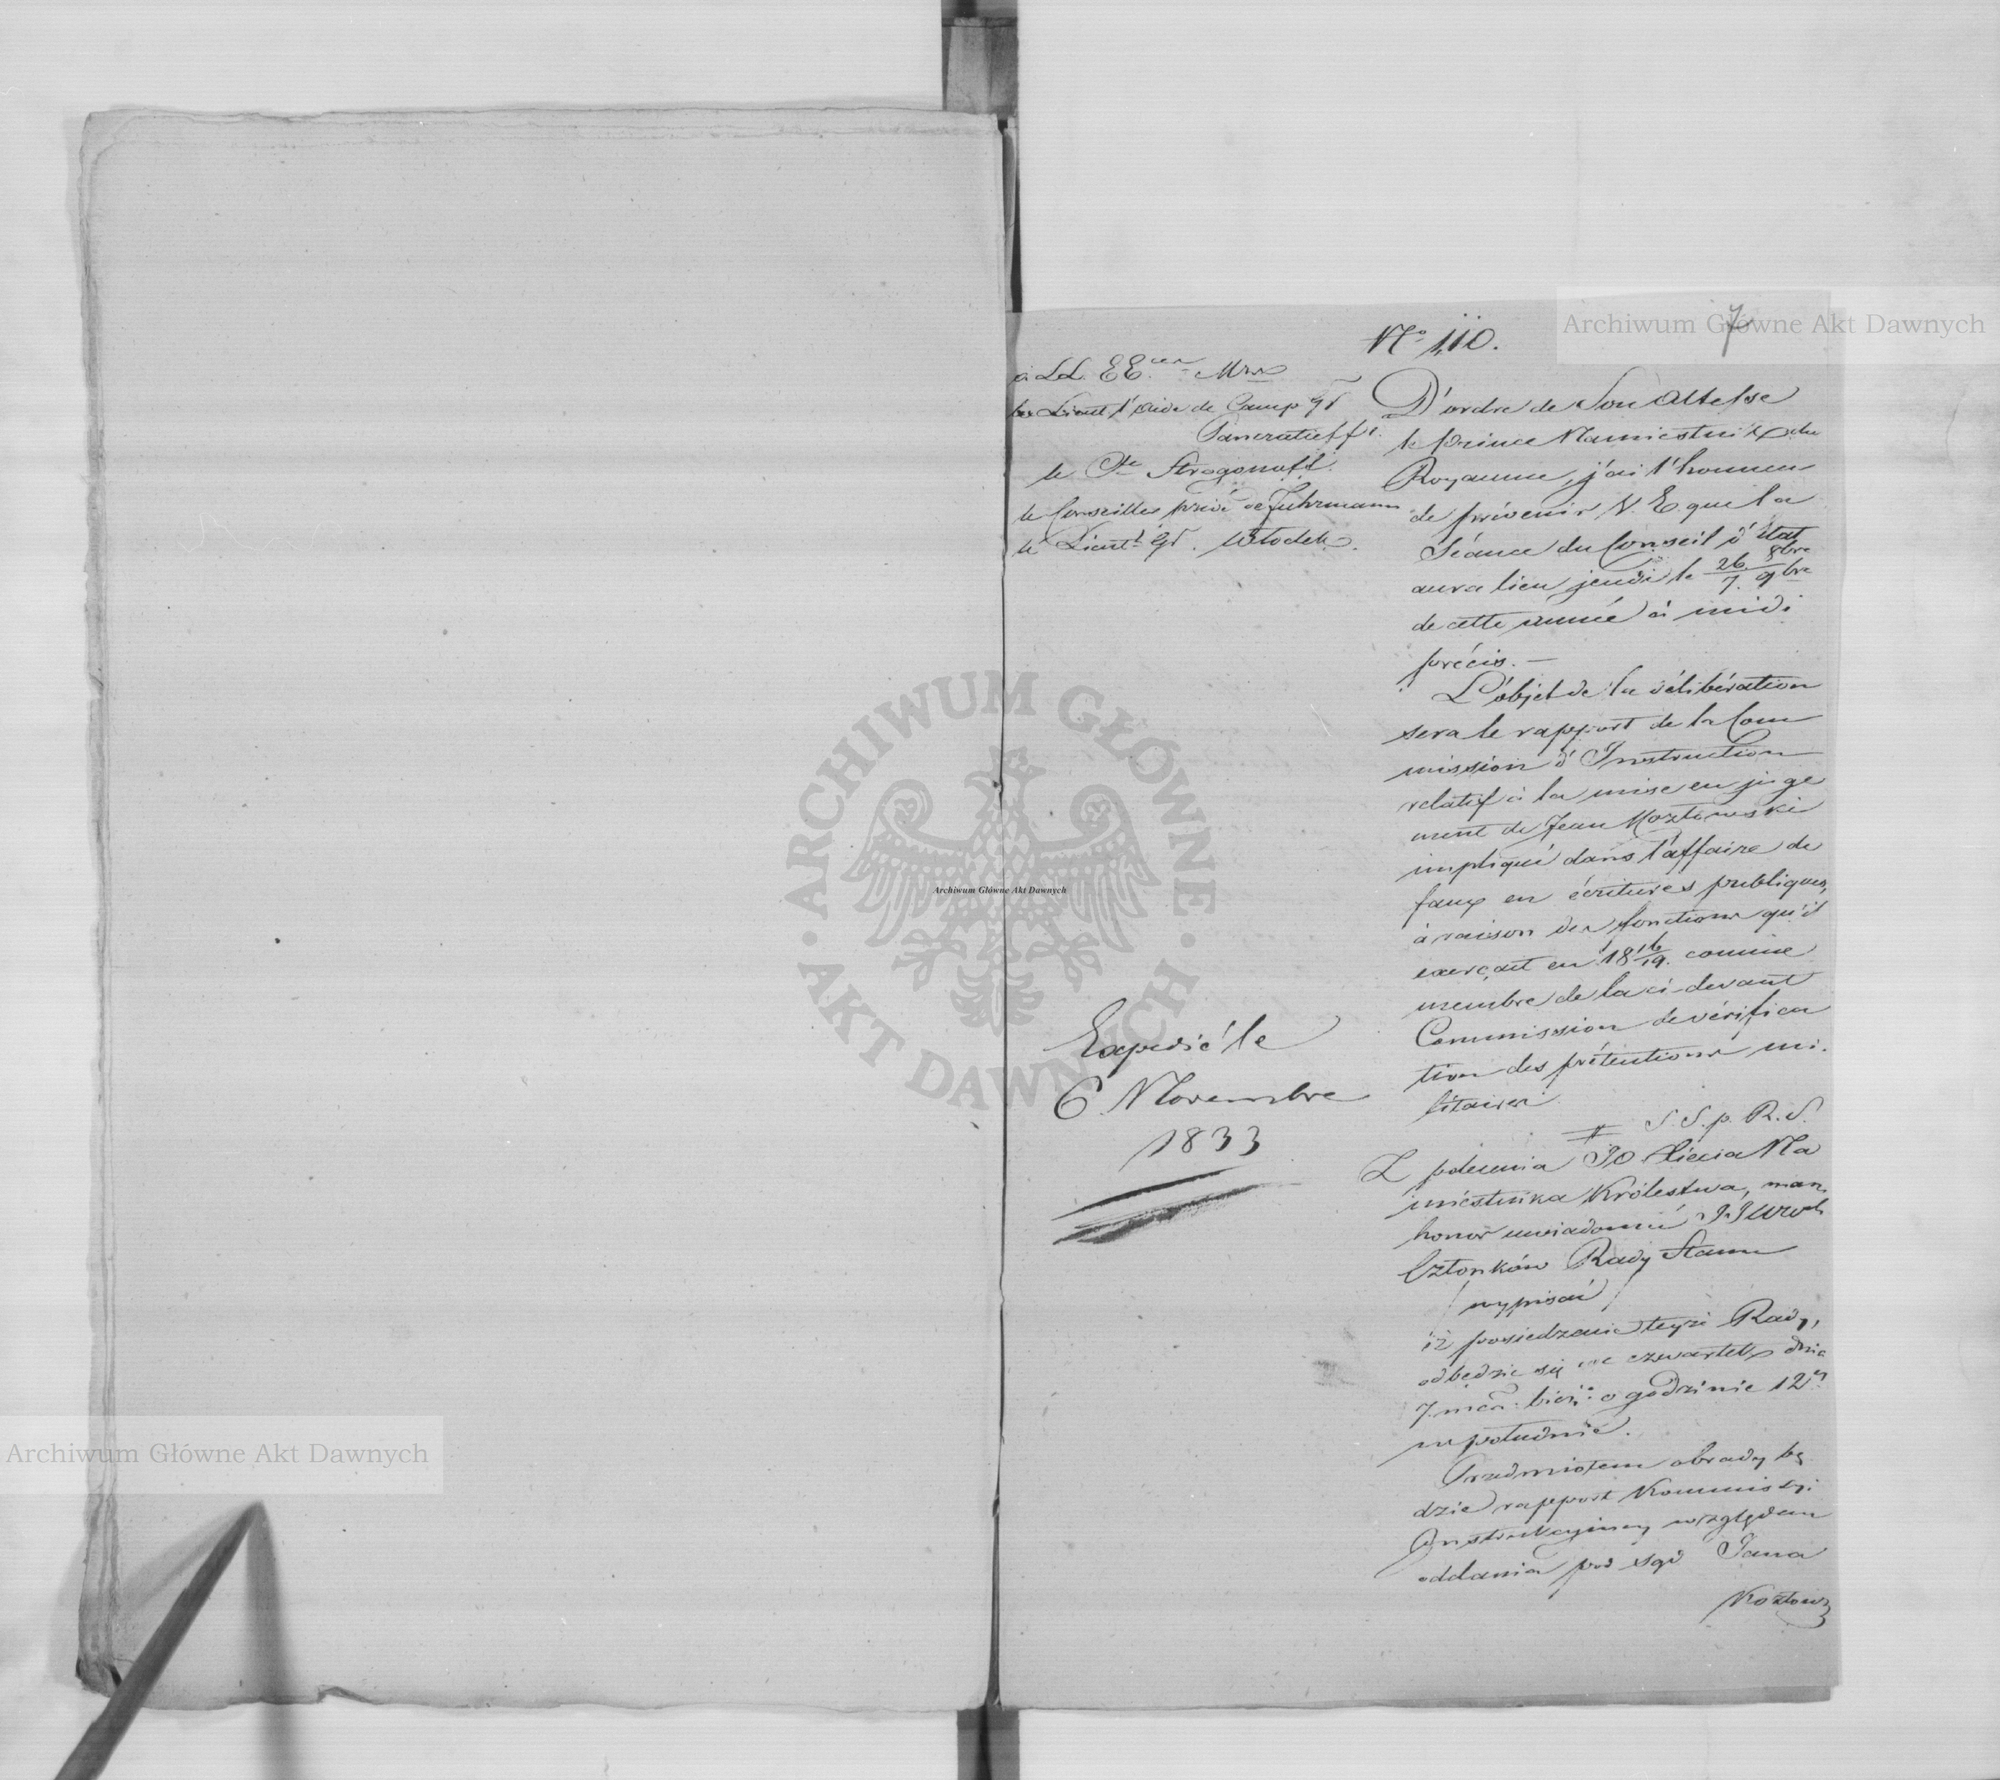 7
Nº 110.
à LL. EE.ces Mrs
les Lieut. l'Aide de Camp Gl
Pancratieff 1.
le Cte Strogonoff.
le Conseiller privé de Fuhrmann
le Lieut. Gl. Włodek.
Expedié le
6 Novembre
1833
D'ordre de Son Altesse
le prince Namiestnik du
Royaume, j'ai l'honneur
de prévenir V. E que la
Séance du Conseil d'Etat
aura lieu jeudi le 26/7. 8bre/9bre
de cette année à midi
précis. —
L'objet de la délibération
sera le rapport de la Com
mission d'Instruction
relatif à la mise en juge
ment de Jean Kozłowski
impliqué dans l'affaire de
faux en écritures publiques,
à raison des fonctions qu'il
exerçait en 18 16/19. comme
membre de la ci-devant
Commission de vérifica
tion des prétentions mi.
litaires.
S. S. p. R. S.
Z polecenia JO Xięcia Na
miestnika Królestwa, mam
honor uwiadomić JJWWch
Członków Rady Stanu
/ wypisać /
iż posiedzenie teyże Rady,
odbędzie się we czwartek dnia
7. mca. bież: o godzinie 12ey
w południe.
Przedmiotem obrady bę
dzie rapport Kommissyi
Instrukcyiney względem
oddania pod sąd Jana
Kozłows
Archiwum Główne Akt Dawnych
Archiwum Główne Akt Dawnych
Archiwum Główne Akt Dawnych
ARCHIWUM GŁÓWNE · AKT DAWNYCH ·